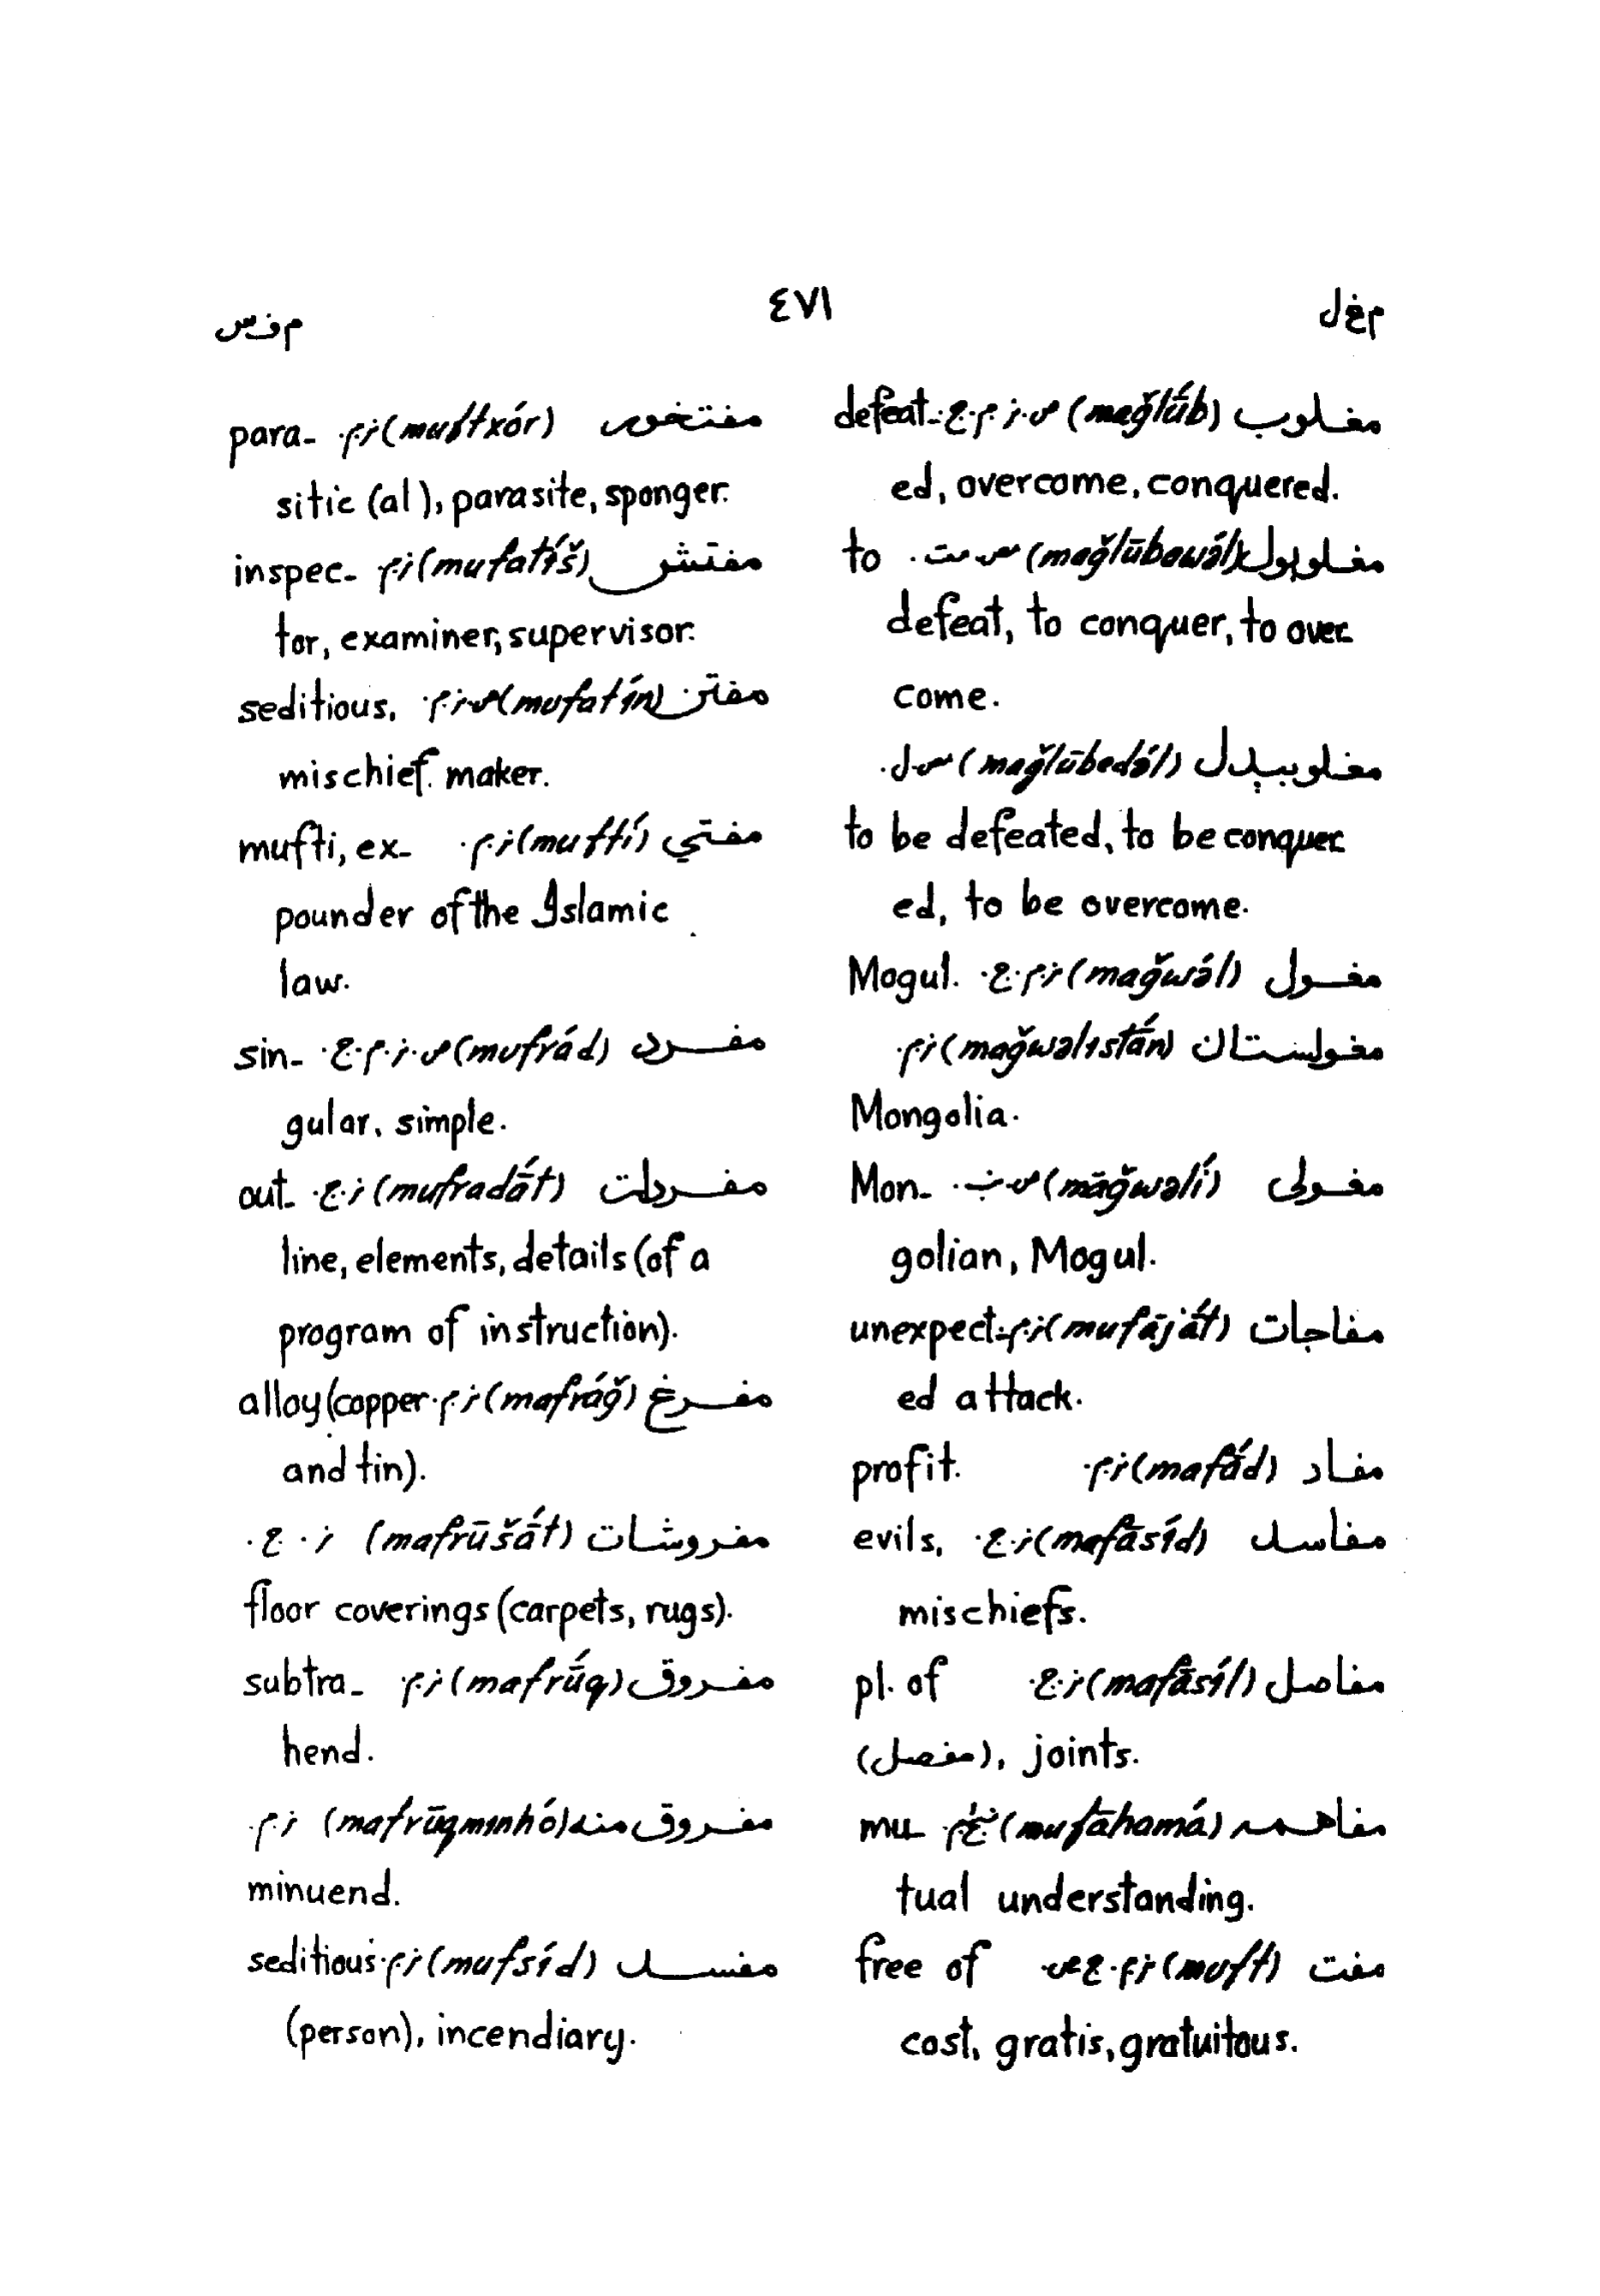 م‌غ‌ل
٤٧١
م‌ف‌س
مغلوب (maǧlū́b) ص·ز·م·ج· defeat-
ed, overcome, conquered.
مغلوبول (maǧlūbawə́l) to
defeat, to conquer, to over-
come.
مغلوبېدل (maǧlūbedə́l) س ل·
to be defeated, to be conquer-
ed, to be overcome.
مغول (maǧwə́l) ز·م·ج· Mogul.
مغولستان (maǧwəlıstā́n) ز·م·
Mongolia.
مغولی (māǧwəlí) Mon-
golian, Mogul.
مفاجات (mufāǰā́t) ز·م· unexpect-
ed attack.
مفاد (mafā́d) ز·م· profit.
مفاسد (mafāsíd) ز·ج· evils,
mischiefs.
مفاصل (mafāsíl) ز·ج· pl. of
(مفصل), joints.
مفاهمه (mufāhamá) mu-
tual understanding.
مفت (muft) free of
cost, gratis, gratuitous.
مفتخور (muftxór) ز·م· para-
sitic (al), parasite, sponger.
مفتش (mufatíš) ز·م· inspec-
tor, examiner, supervisor.
مفتن (mufatín) ص·ز·م· seditious,
mischief maker.
مفتي (muftí) ز·م· mufti, ex-
pounder of the Islamic
law.
مفرد (mufrád) ص·ز·م·ج· sin-
gular, simple.
مفردات (mufradā́t) ز·ج· out-
line, elements, details (of a
program of instruction).
مفرغ (mafráǧ) ز·م· alloy (copper
and tin).
مفروشات (mafrūšā́t) ز·ج·
floor coverings (carpets, rugs).
مفروق (mafrū́q) ز·م· subtra-
hend.
مفروق منه (mafrūqmınhó) ز·م·
minuend.
مفسد (mufsíd) ز·م· seditious
(person), incendiary.